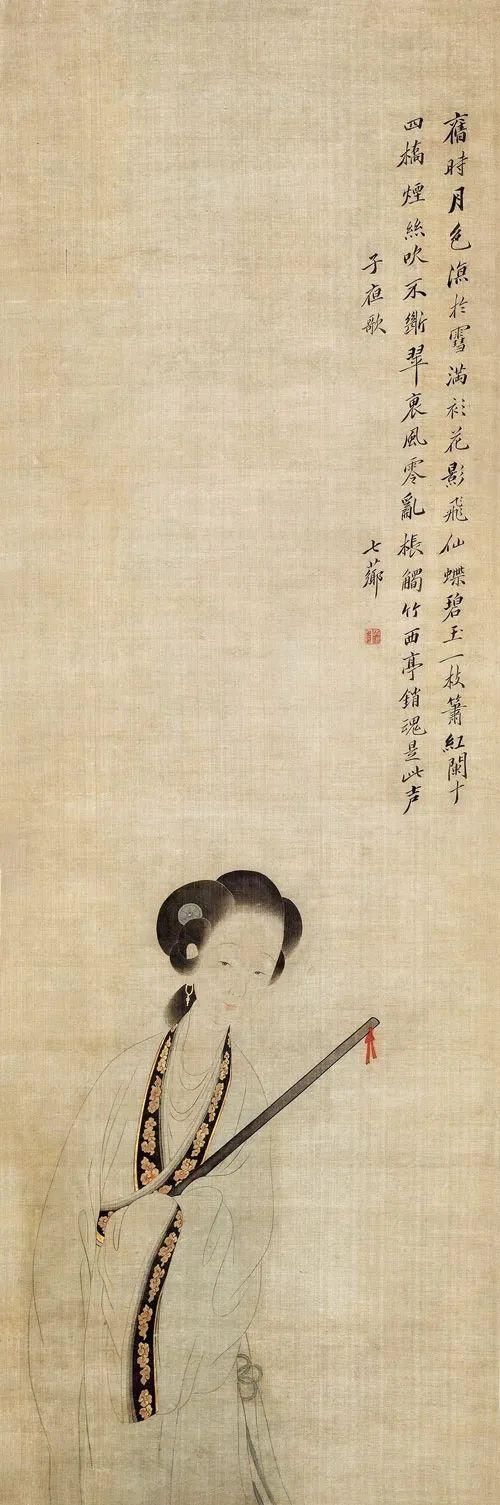 舊時月色涼於雪滿衫花影飛仙蝶碧玉一枝簫紅闌十
四橋煙絲吹不斷翠裏風零亂棖觸竹西亭銷魂是此声
子夜歌
七薌